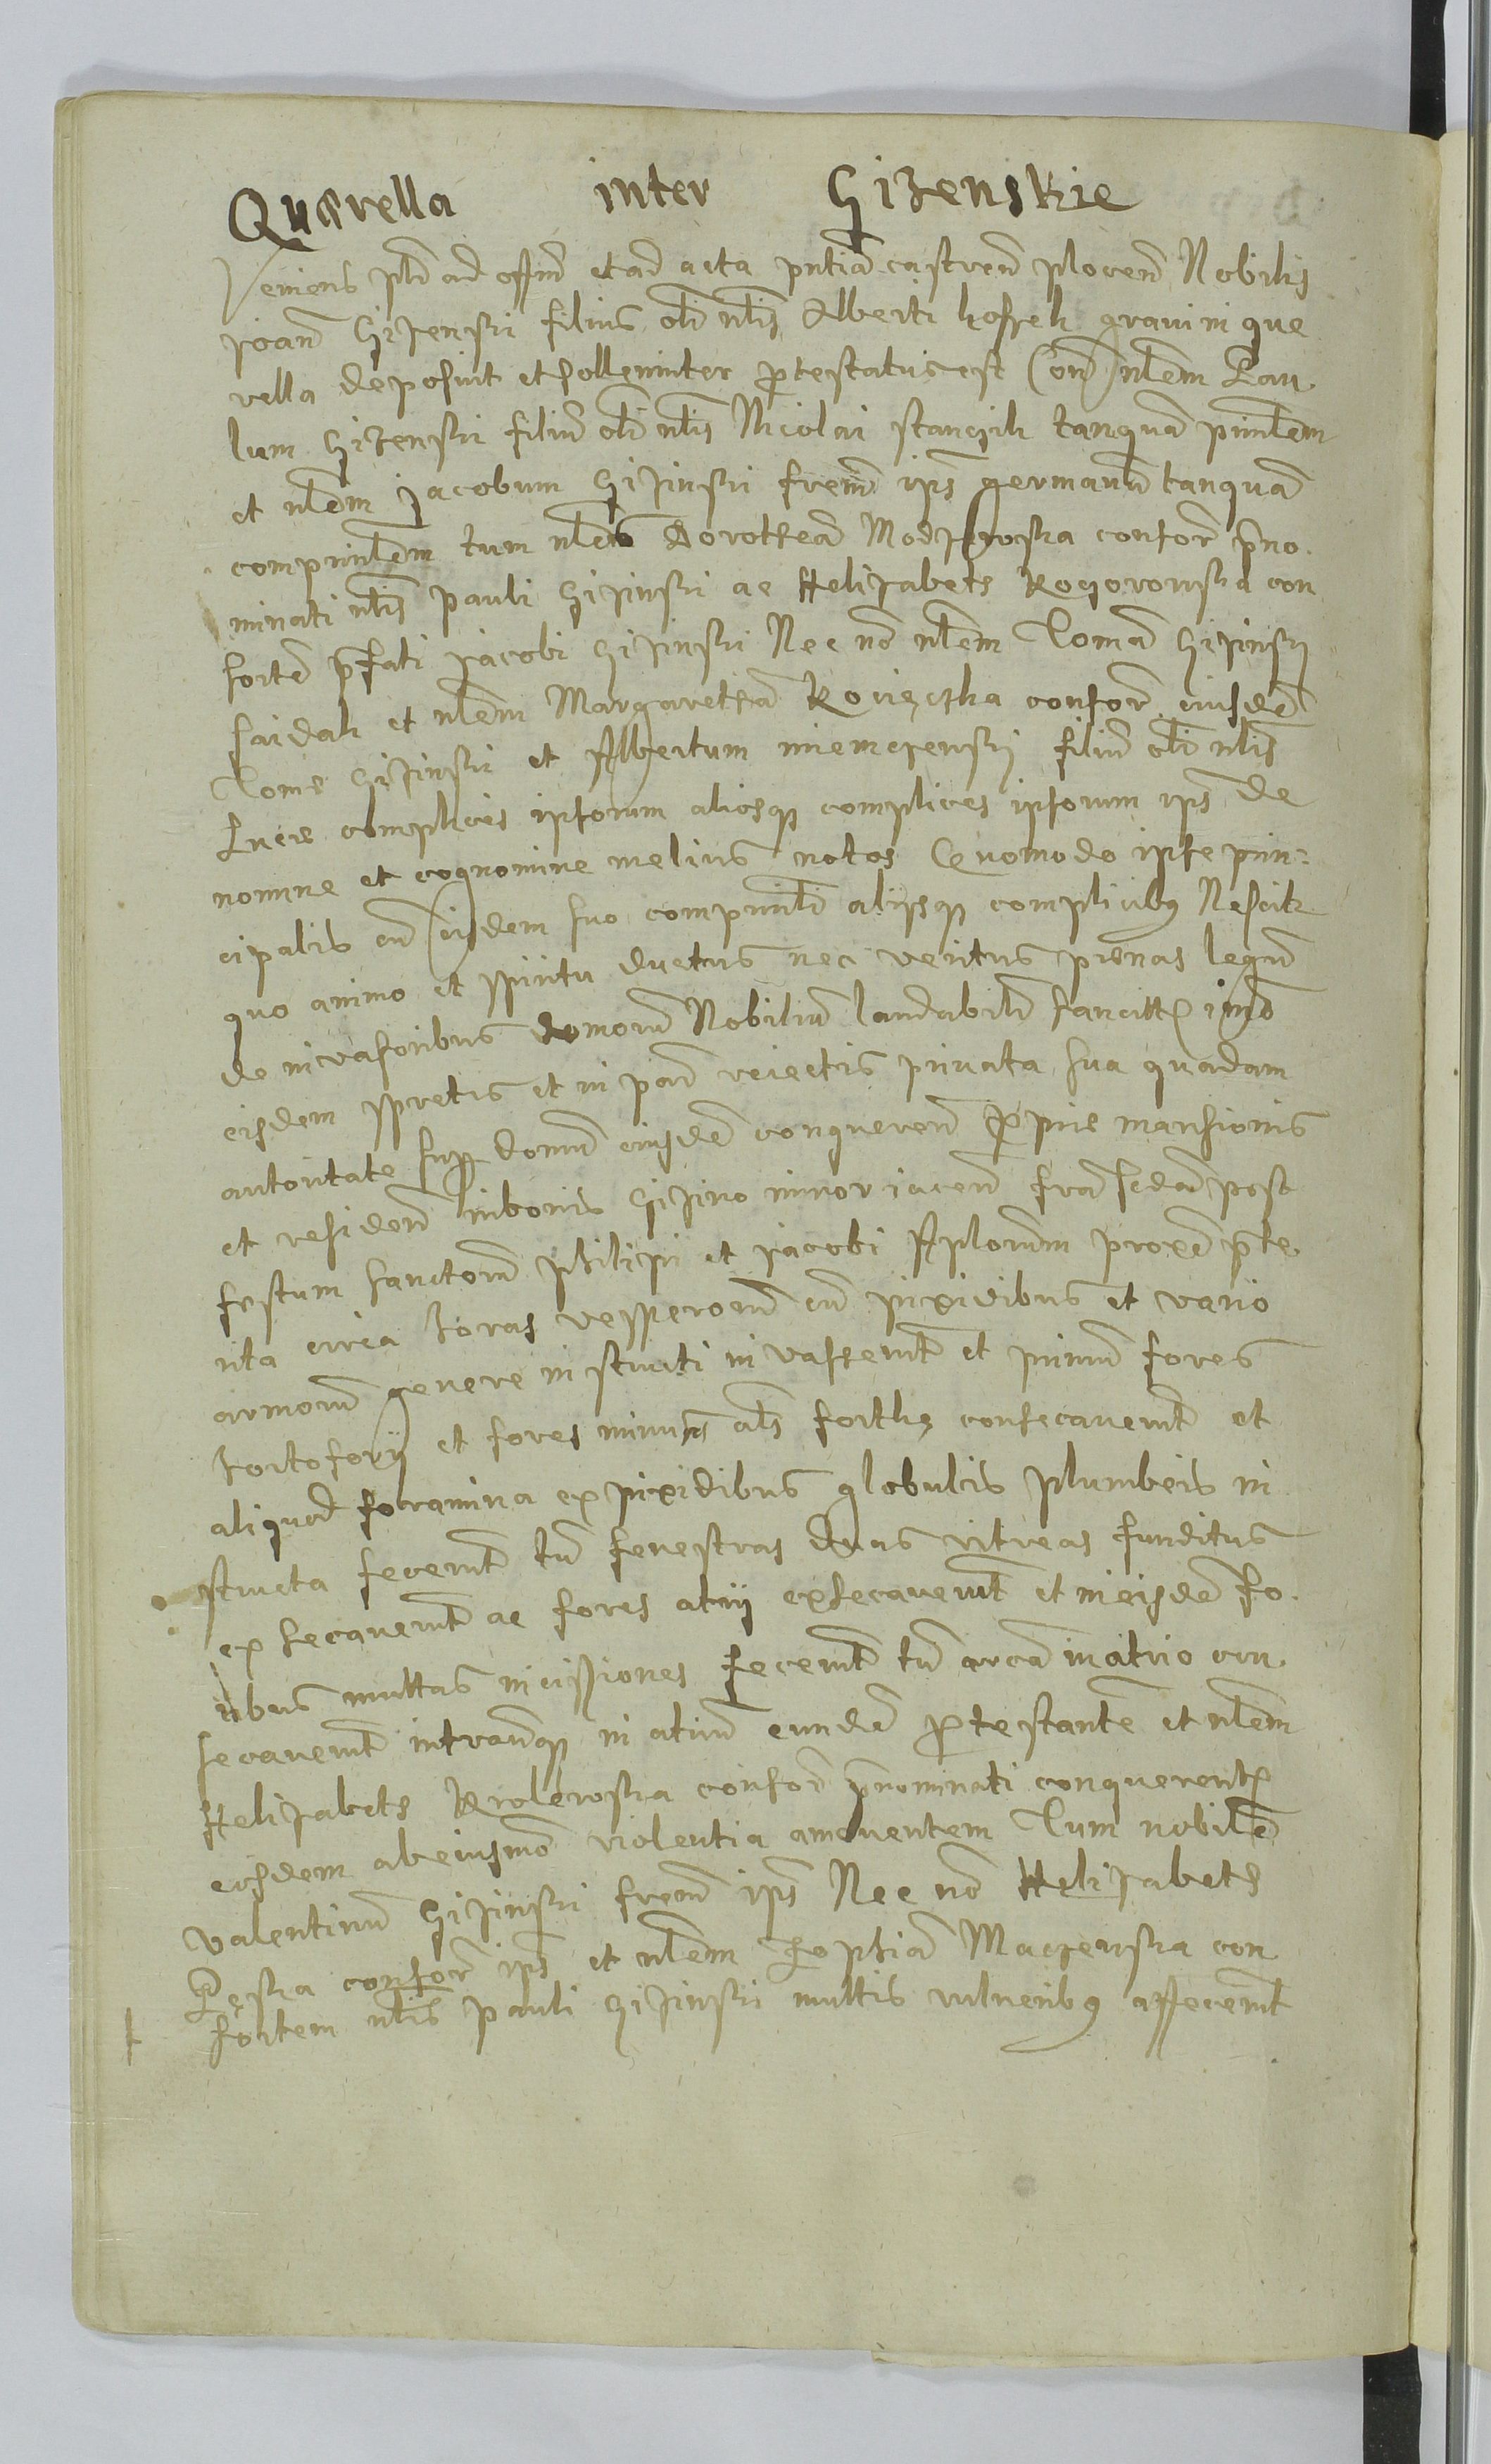 Querella inter Gizenskie
Veniens pltr ad offm et ad acta pntia castren plocen Nobilis
joan Gizenski filius oli nlis Alberti gravi in que
rella deposuit et sollenniter ptestatus est Con nlem Pau
lum Gizenski filiu oli nlis Nicolai stanczik tanqua prinlem
et nlem jacobum Gizinski frem ips germanu tanqua
comprinlem tum nlem Dorothea consor pno
minati nlis pauli Gizinski ac Helizabeth con
sorte pfati jacobi Gizinski Nec no nlem Toma Gizinsky
saidak et nlem Margaretha consor eiusde
Tome Gizinski et Albertum niemczensky filiu oli nlis
Luce complices ipsorum aliosq complices ipsorum ips de
nomine et cognomine melius notos Quomodo ipse prin
cipalis cu eisdem suo comprinli alijsq complicibq Nescit
quo animo et spiritu ductus nec veritus penas legu
de invasoribus domoru Nobiliu laudabili sancitt imo
eisdem spretis et in par reiectis privata sua quadam
autoritate sup domu eiusde conqueren pprie mansionis
et residen in bonis Gizino minor iacen fra scda post
festum sanctoru philipi et jacobi Aplorum proxe pte
rita circa horas vesperoru cu pixidibus et vario
armoru genere instructi invasserut et primu fores
hortosory et fores minus als forthq consecaverut et
aliquod foramina ex pixidibus globulis plumbeis in
structa fecerut tu fenestras duas vitreas funditus
ex secaverut ac fores atrij exsecaverut et in eisde fo
ribus multas incissiones fecerut tu arca in atrio con
secaverut intrantq in atriu eunde ptestante et nlem
Helizabeth consor pnominati conquerent
eosdem ab eiusmo violentia amoventem Tum nobile
valentinu Gizinski frem ips Nec no Helizabeth
consor ips et nlem Zophia con
sortem nlis pauli Gizinski multis vulneribq affecerut